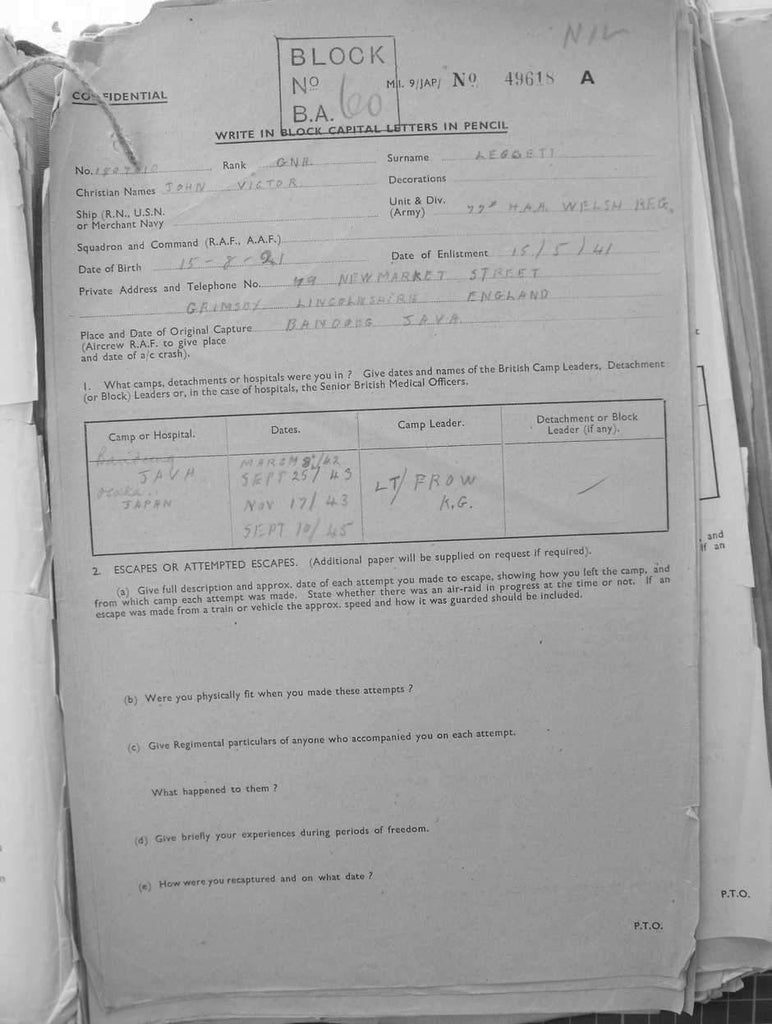 NIL
BLOCK
Nº
B.A. 60
M.I. 9/JAP/ Nº 49618 A
CONFIDENTIAL
WRITE IN BLOCK CAPITAL LETTERS IN PENCIL
No. Rank GNR Surname LEGGETT
Christian Names JOHN VICTOR Decorations
Ship (R.N., U.S.N. or Merchant Navy
Unit & Div. (Army) 77th H.A.A. WELSH REG.
Squadron and Command (R.A.F., A.A.F.)
Date of Birth 15-8-21 Date of Enlistment 15/5/41
Private Address and Telephone No. 79 NEWMARKET STREET
GRIMSBY LINCOLNSHIRE ENGLAND
Place and Date of Original Capture BANDONG JAVA
(Aircrew R.A.F. to give place
and date of a/c crash).
1. What camps, detachments or hospitals were you in ? Give dates and names of the British Camp Leaders, Detachment
(or Block) Leaders or, in the case of hospitals, the Senior British Medical Officers.
Camp or Hospital. Dates. Camp Leader. Detachment or Block
Leader (if any).
Bandong MARCH 8/42
JAVA SEPT 25/43
LT/ FROW
Osaka NOV 17/43 K.G.
JAPAN
SEPT 10/45
2. ESCAPES OR ATTEMPTED ESCAPES. (Additional paper will be supplied on request if required).
(a) Give full description and approx. date of each attempt you made to escape, showing how you left the camp, and
from which camp each attempt was made. State whether there was an air-raid in progress at the time or not. If an
escape was made from a train or vehicle the approx. speed and how it was guarded should be included.
(b) Were you physically fit when you made these attempts ?
(c) Give Regimental particulars of anyone who accompanied you on each attempt.
What happened to them ?
(d) Give briefly your experiences during periods of freedom.
(e) How were you recaptured and on what date ?
P.T.O.
, and
If an
P.T.O.